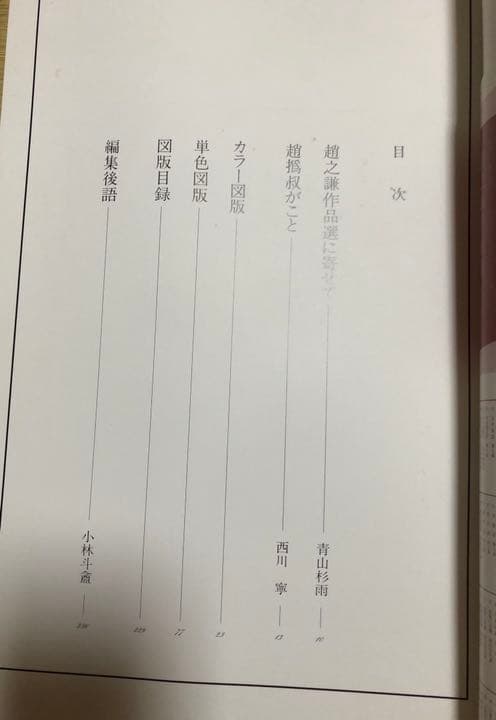 目次
趙之謙作品選に寄せて 青山杉雨 10
趙撝叔がこと 西川 寧 13
カラー図版 25
単色図版 77
図版目録 229
編集後語 小林斗盦 238